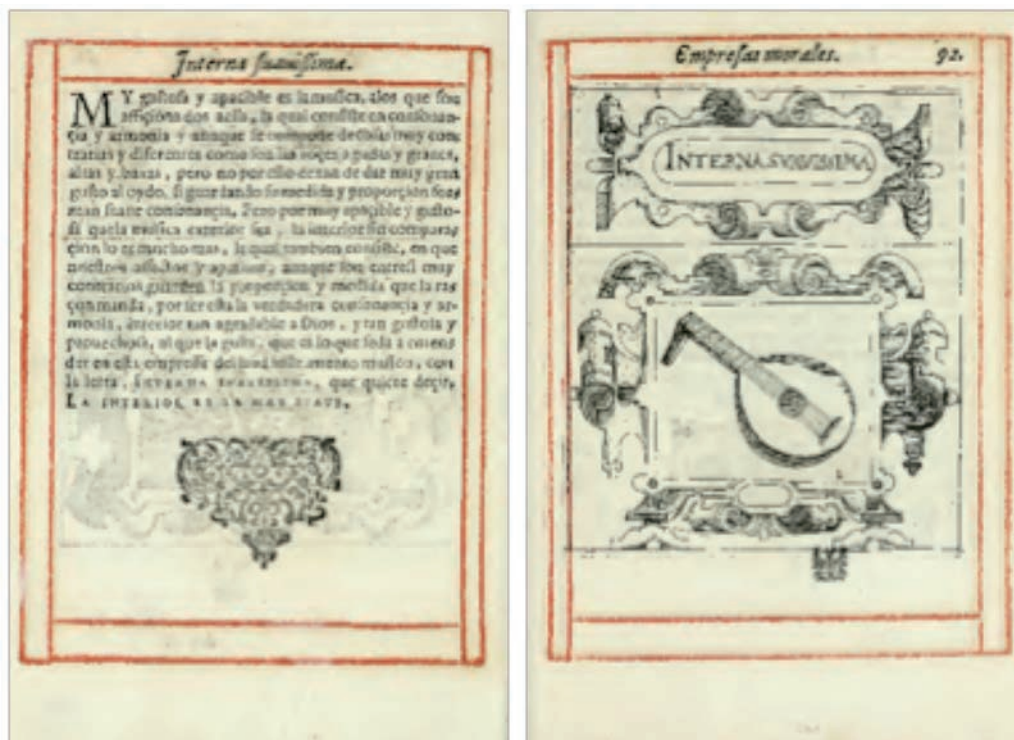 Interna suauissima.
MVY gustosa y apacible es la musica, a los que son
afficionados a ella, la qual consiste en consonan-
çia y armonia y aunque se compone de cosas muy con
trarias y diferentes como son las voçes agudas y graues,
altas y baxas, pero no por esso dexan de dar muy gran
gusto al oydo, si guardando su medida y proporçion for
man suaue consonançia, Pero por muy apaçible y gusto-
sa que la musica exterior sea, la interior sin compara-
çion lo es mucho mas, la qual tambien consiste, en que
nuestros affectos y apetitos, aunque son entre si muy
contrarios guarden la proporçion y medida que la ra
çon manda, por ser esta la verdadera consonançia y ar-
monia, interior tan agradable a Dios, y tan gustosa y
prouechosa, al que la gusta, que es lo que se da a enten
der en esta empresa del instrumento musico, con
la letra, INTERNA SVAVISSIMA, que quiere deçir,
LA INTERIOR ES LA MAS SVAVE.
Empresas morales. 92.
INTERNA SVAVISSIMA